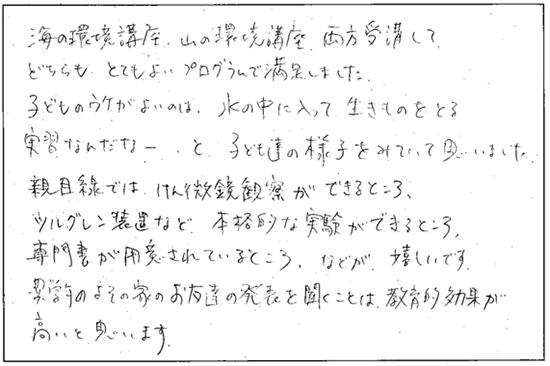 海の環境講座、山の環境講座、両方受講して
どちらも、とてもよいプログラムで満足しました。
子どものウケがよいのは、水の中に入って生きものをとる
実習なんだなー、と、子ども達の様子をみていて思いました。
親目線では、けん微鏡観察ができるところ、
ツルグレン装置など、本格的な実験ができるところ、
専門書が用意されているところ、などが、嬉しいです。
異学年のよその家のお友達の発表を聞くことは、教育的効果が
高いと思います。